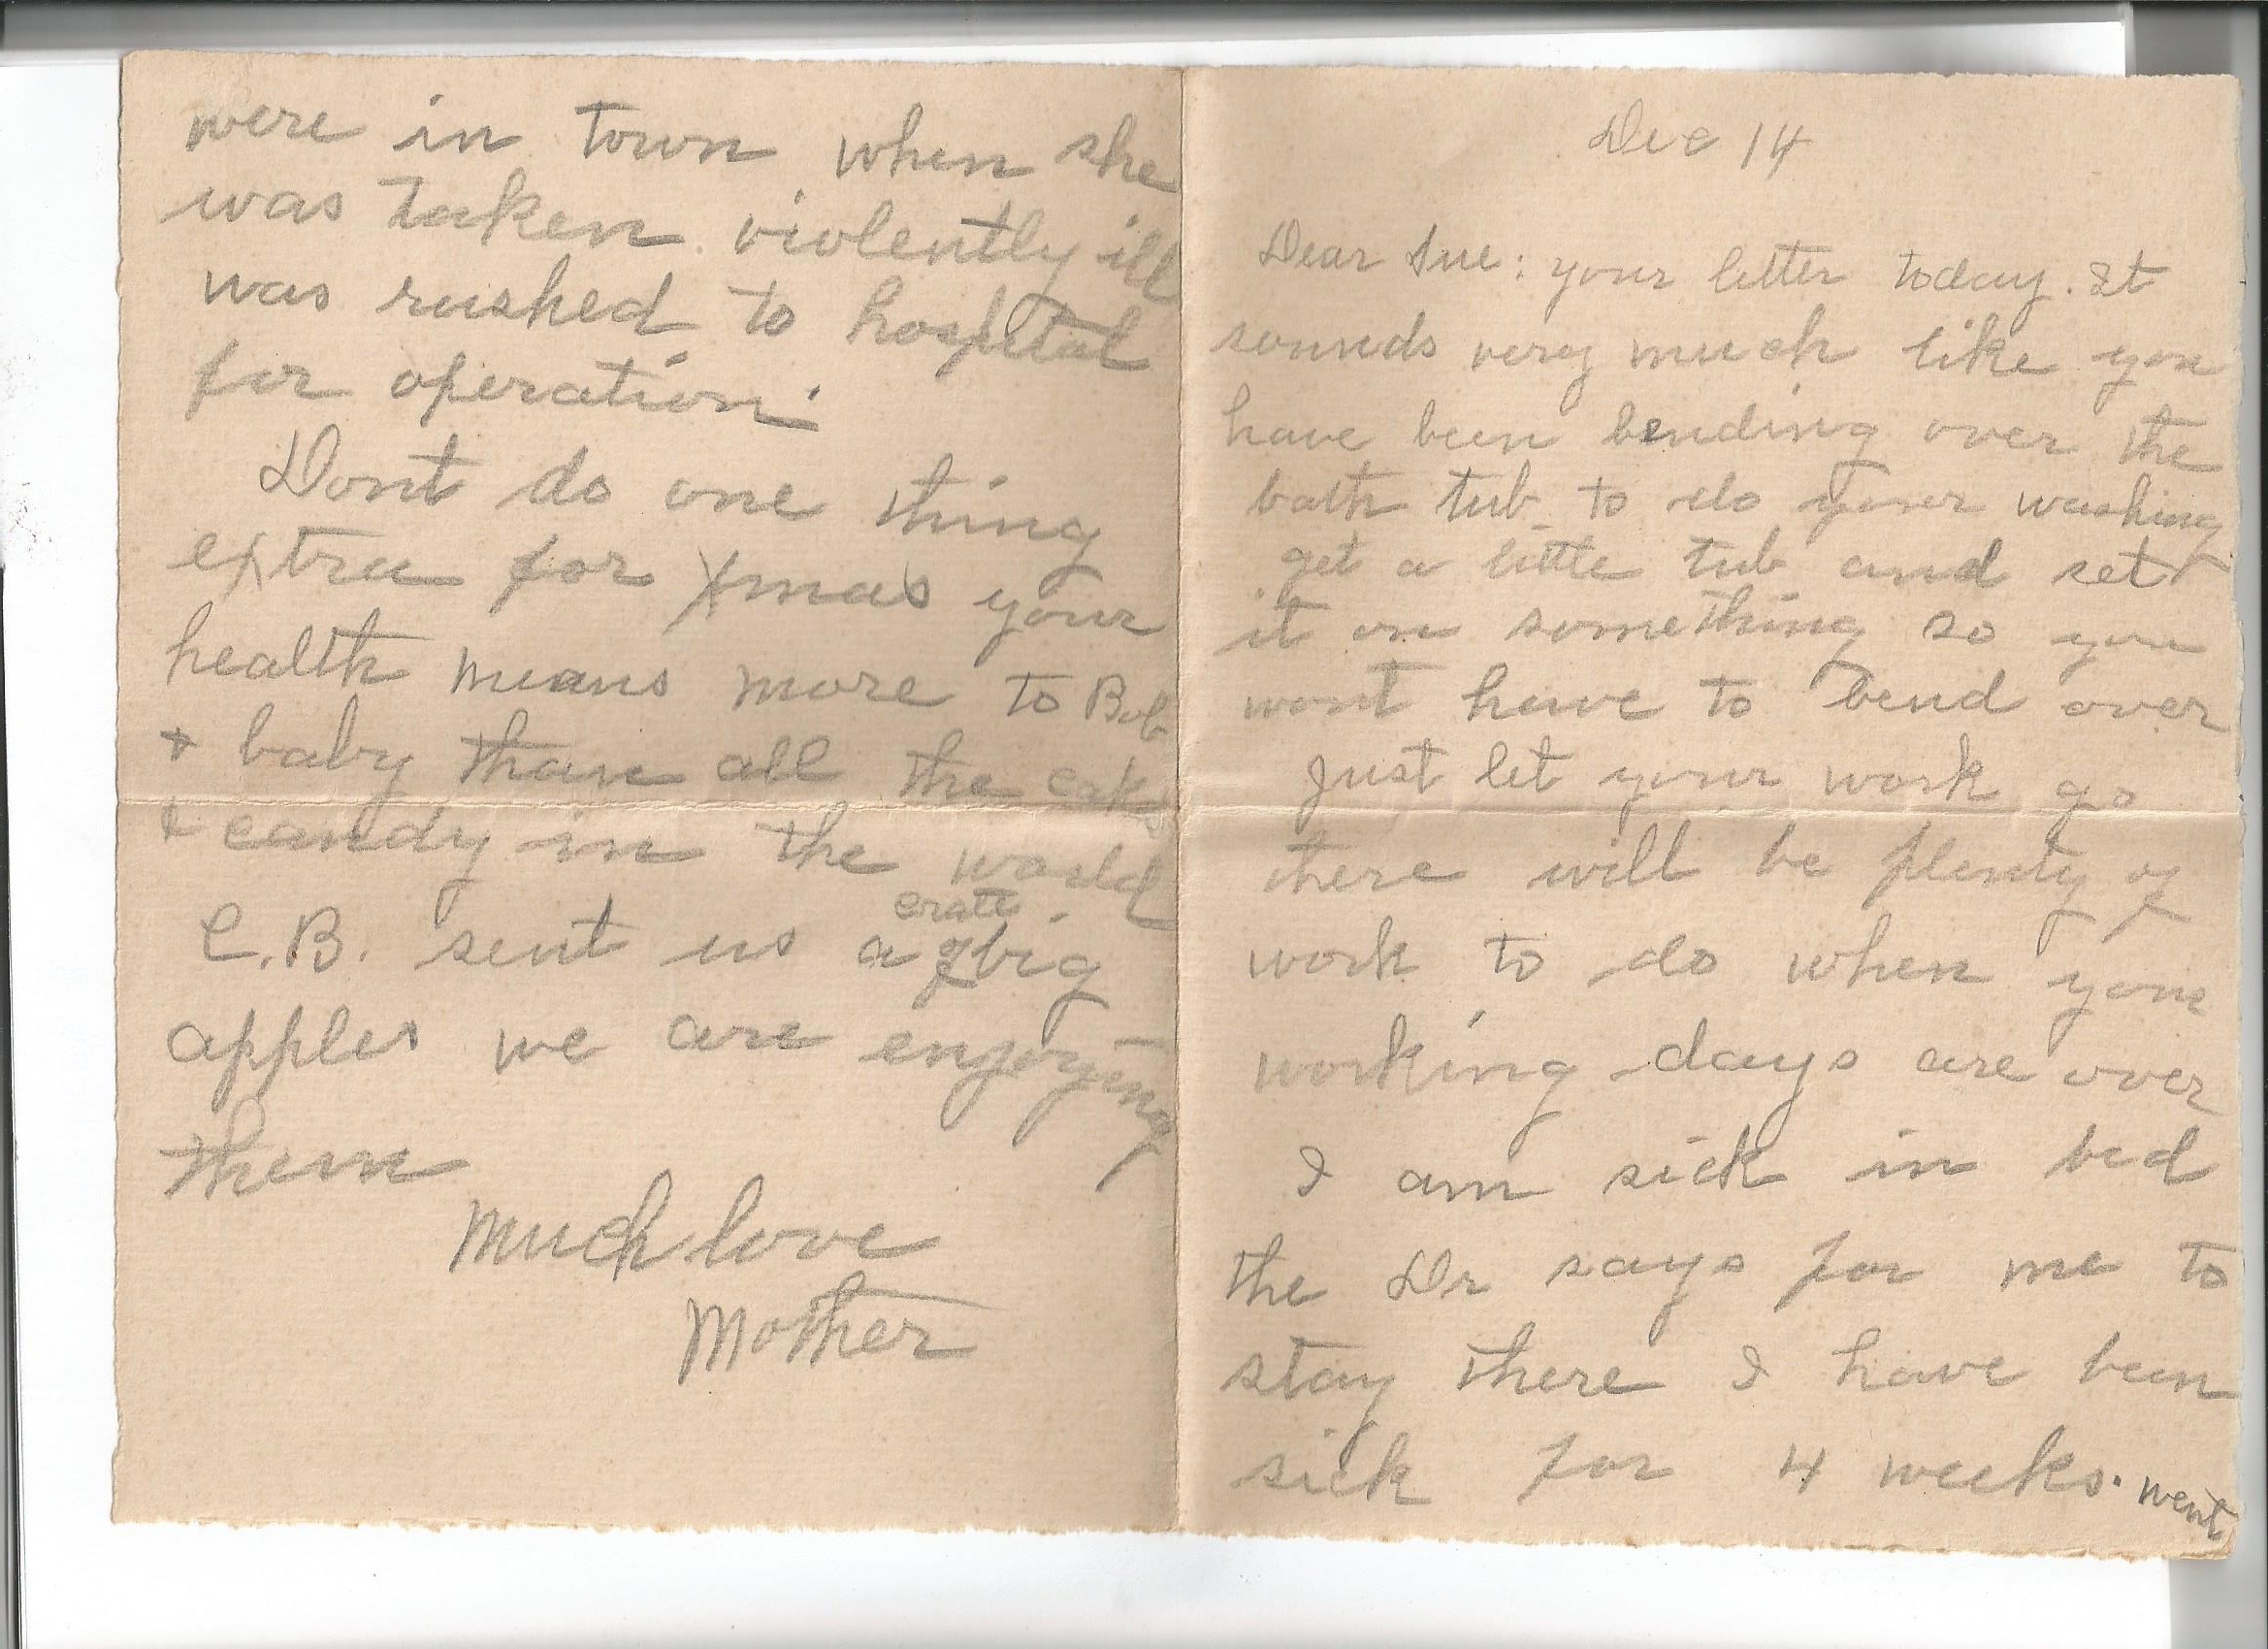 Dec 14
Dear Sue: your letter today. It
sounds very much like you
have been bending over the
bath tub to do your washing
get a little tub and set
it on something so you
wont have to bend over
Just let your work go
there will be plenty of
work to do when your
working days are over
I am sick in bed
the Dr says for me to
stay there I have been
sick for 4 weeks. went
were in town when she
was taken violently ill
was rushed to hospital
for operation.
Dont do one thing
extra for Xmas your
health means more to Bob
+ baby than all the cake
& candy in the world
C.B. sent us a crate of big
apples we are enjoying
them
Much love
Mother